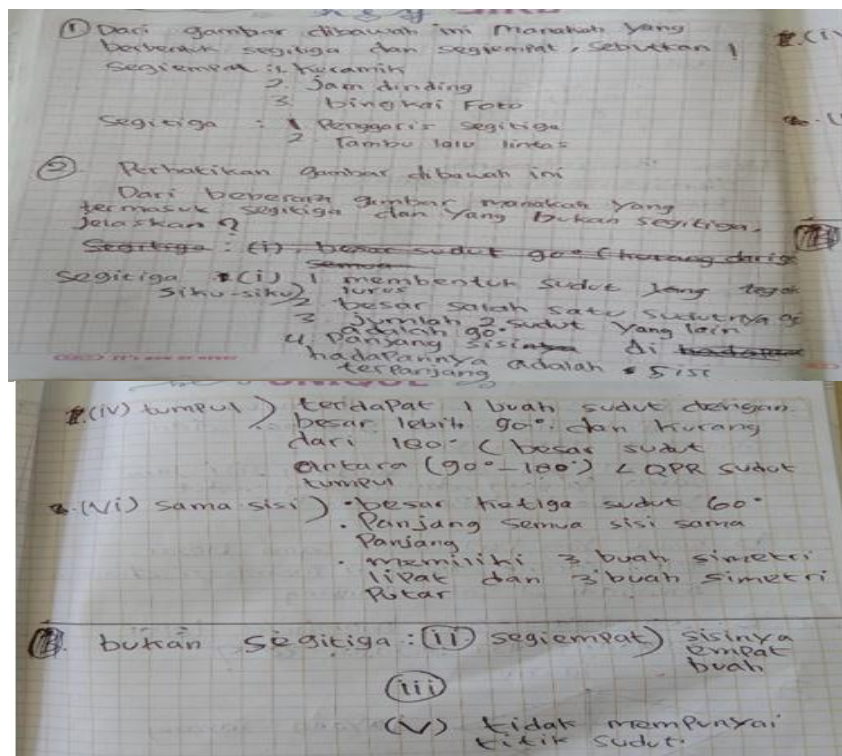 ① Dari gambar dibawah ini manakah yang
berbentuk segitiga dan segiempat, sebutkan !
Segiempat : 1. keramik
2. Jam dinding
3. bingkai Foto
Segitiga : 1. Penggaris segitiga
2. Tambu lalu lintas
② Perhatikan gambar dibawah ini
Dari beberapa gambar manakah yang
termasuk segitiga dan yang bukan segitiga.
Jelaskan ?
Segitiga : (i) besar sudut 90° (kurang dari
semua
Segitiga (i) 1 membentuk sudut yang tegak
siku-siku) lurus
2 besar salah satu sudutnya 90
3 jumlah 2 sudut yang lain
adalah 90°
4. Panjang sisi di
hadapannya adalah sisi
terpanjang
(iv) tumpul ) terdapat 1 buah sudut dengan
besar lebih 90° dan kurang
dari 180° (besar sudut
antara (90°-180°) ∠ QPR sudut
tumpul
(Vi) sama sisi ) • besar ketiga sudut 60°
• Panjang semua sisi sama
Panjang
• memiliki 3 buah simetri
lipat dan 3 buah simetri
Putar
bukan segitiga : (ii) segiempat) sisinya
empat
buah
(iii)
(V) tidak mempunyai
titik sudut.